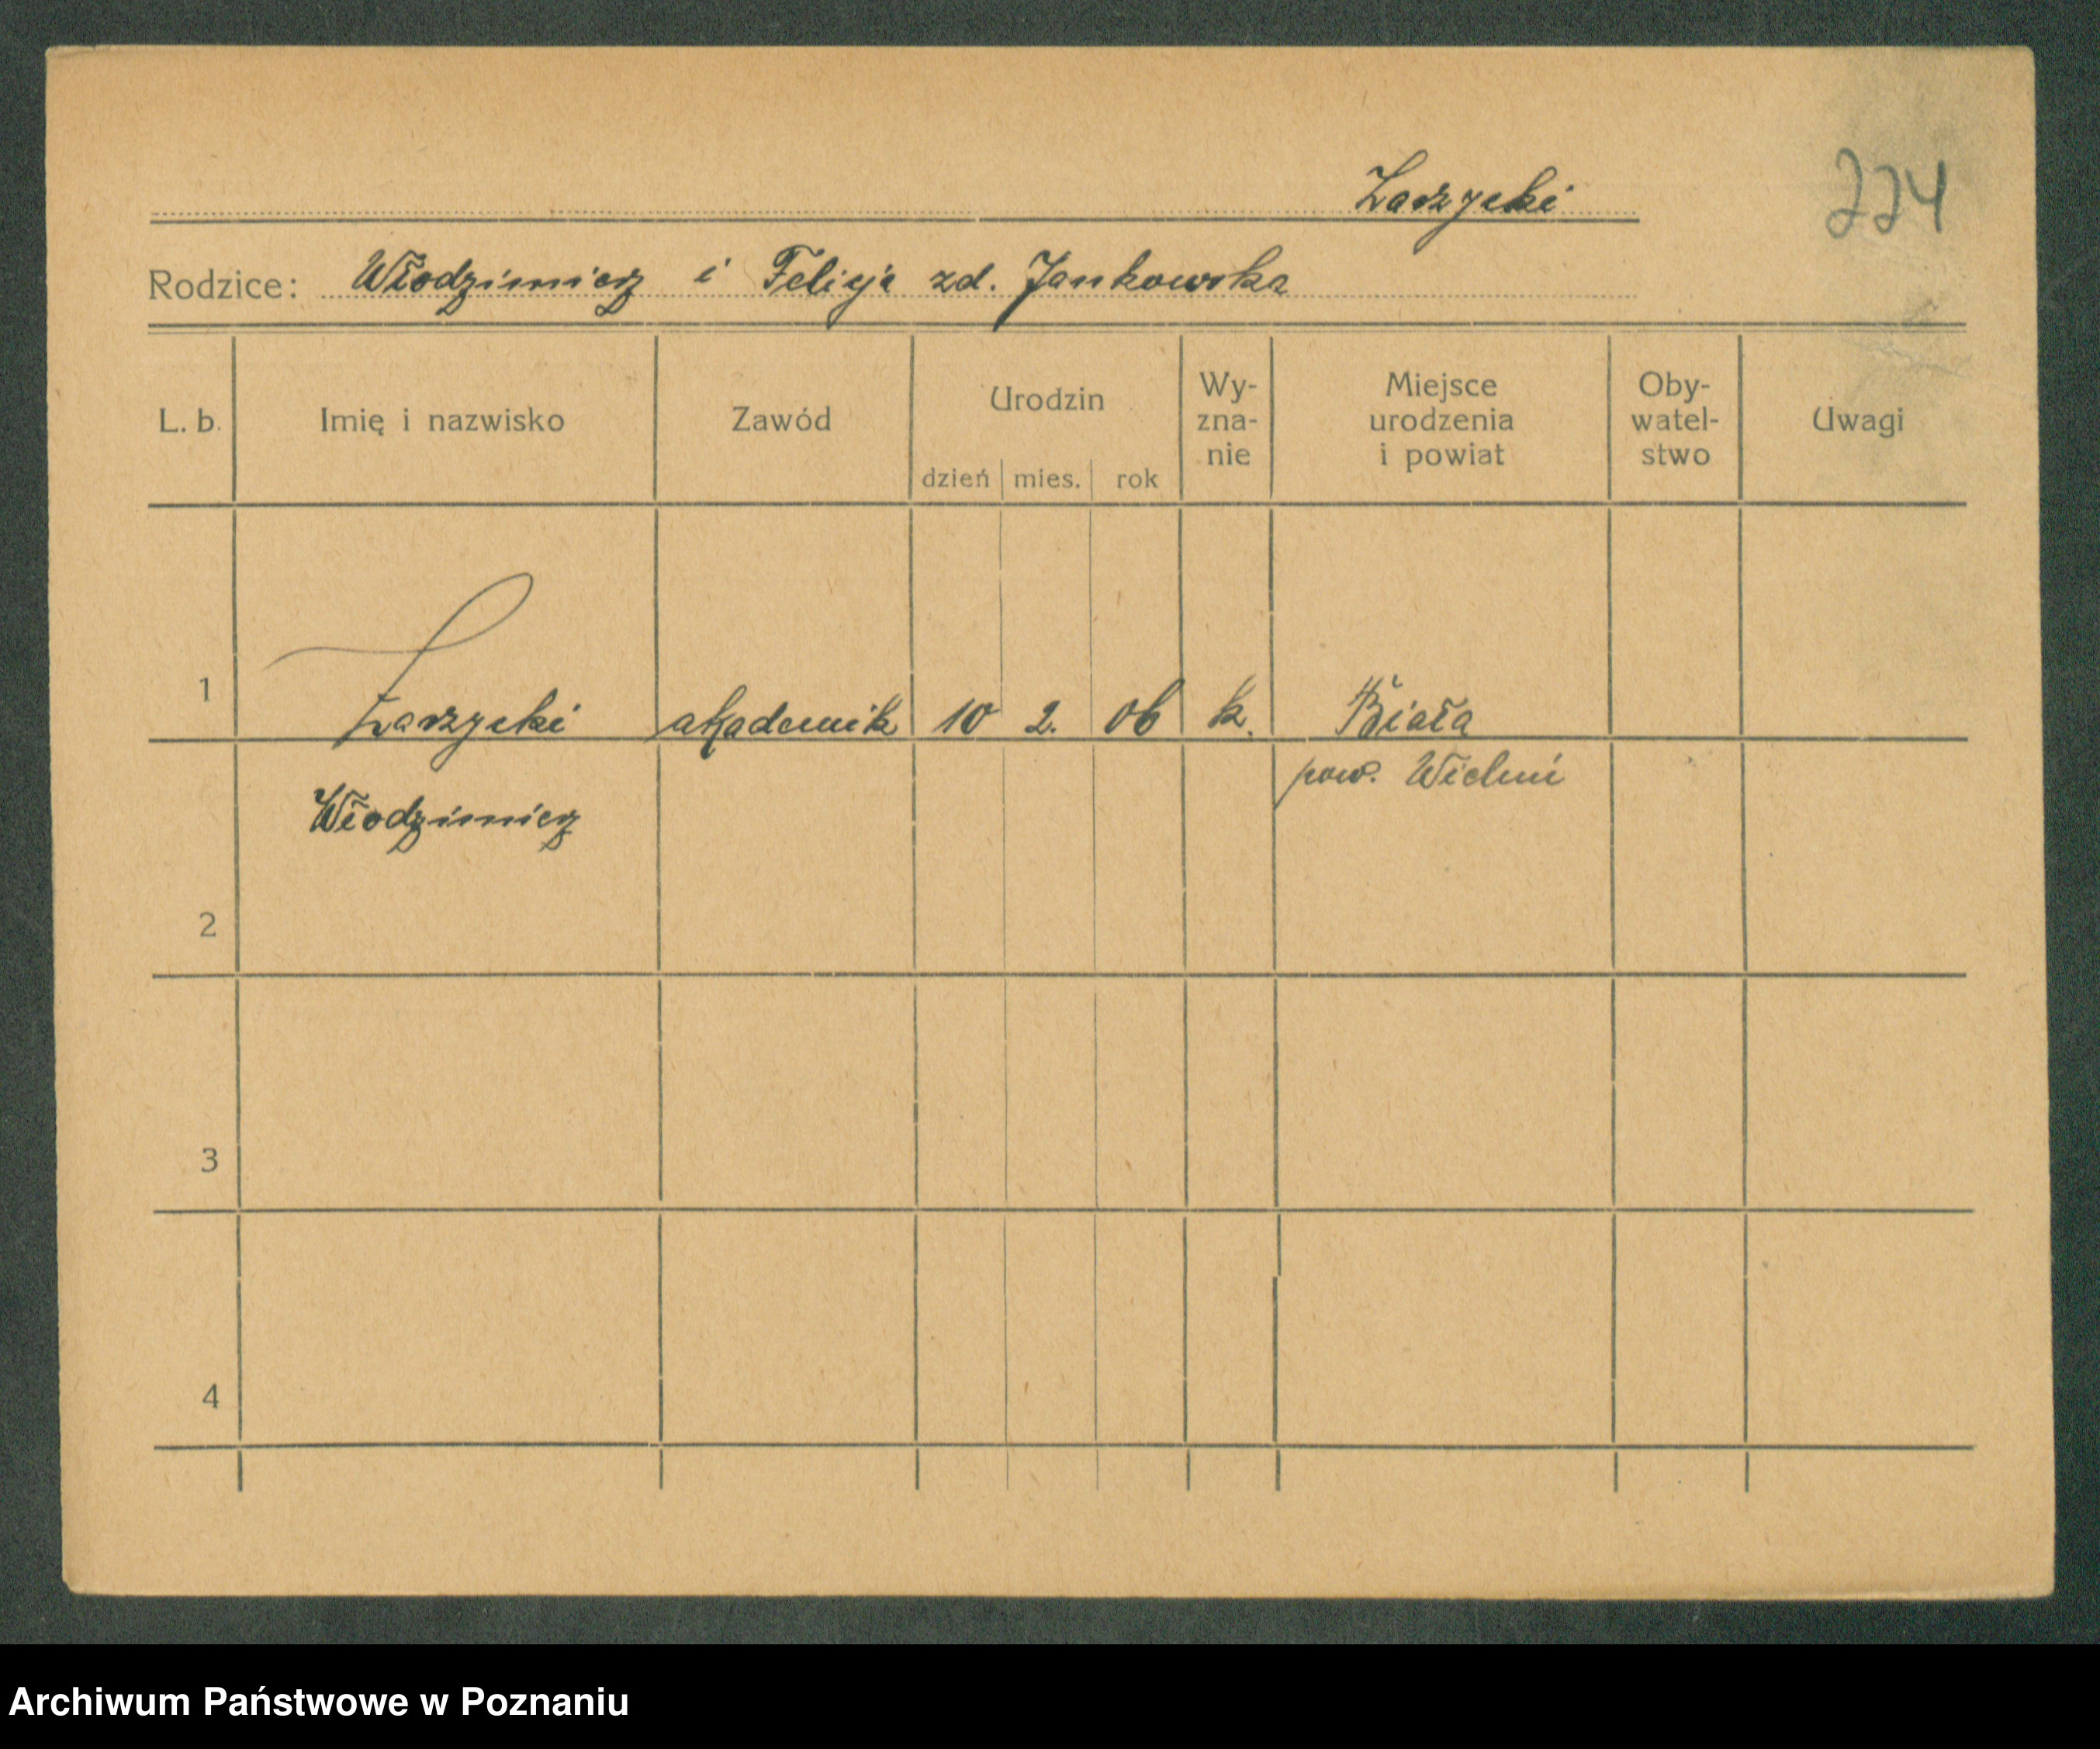 Zarzycki
224
Rodzice: Włodzimierz i Felicja zd. Jankowska
L. b. Imię i nazwisko Zawód Urodzin dzień mies. rok Wy-zna-nie Miejsce urodzenia i powiat Oby-watel-stwo Uwagi
1 Zarzycki akademik 10 2. 06 k. Biała
pow. Wieluń
Włodzimierz
2
3
4
Archiwum Państwowe w Poznaniu